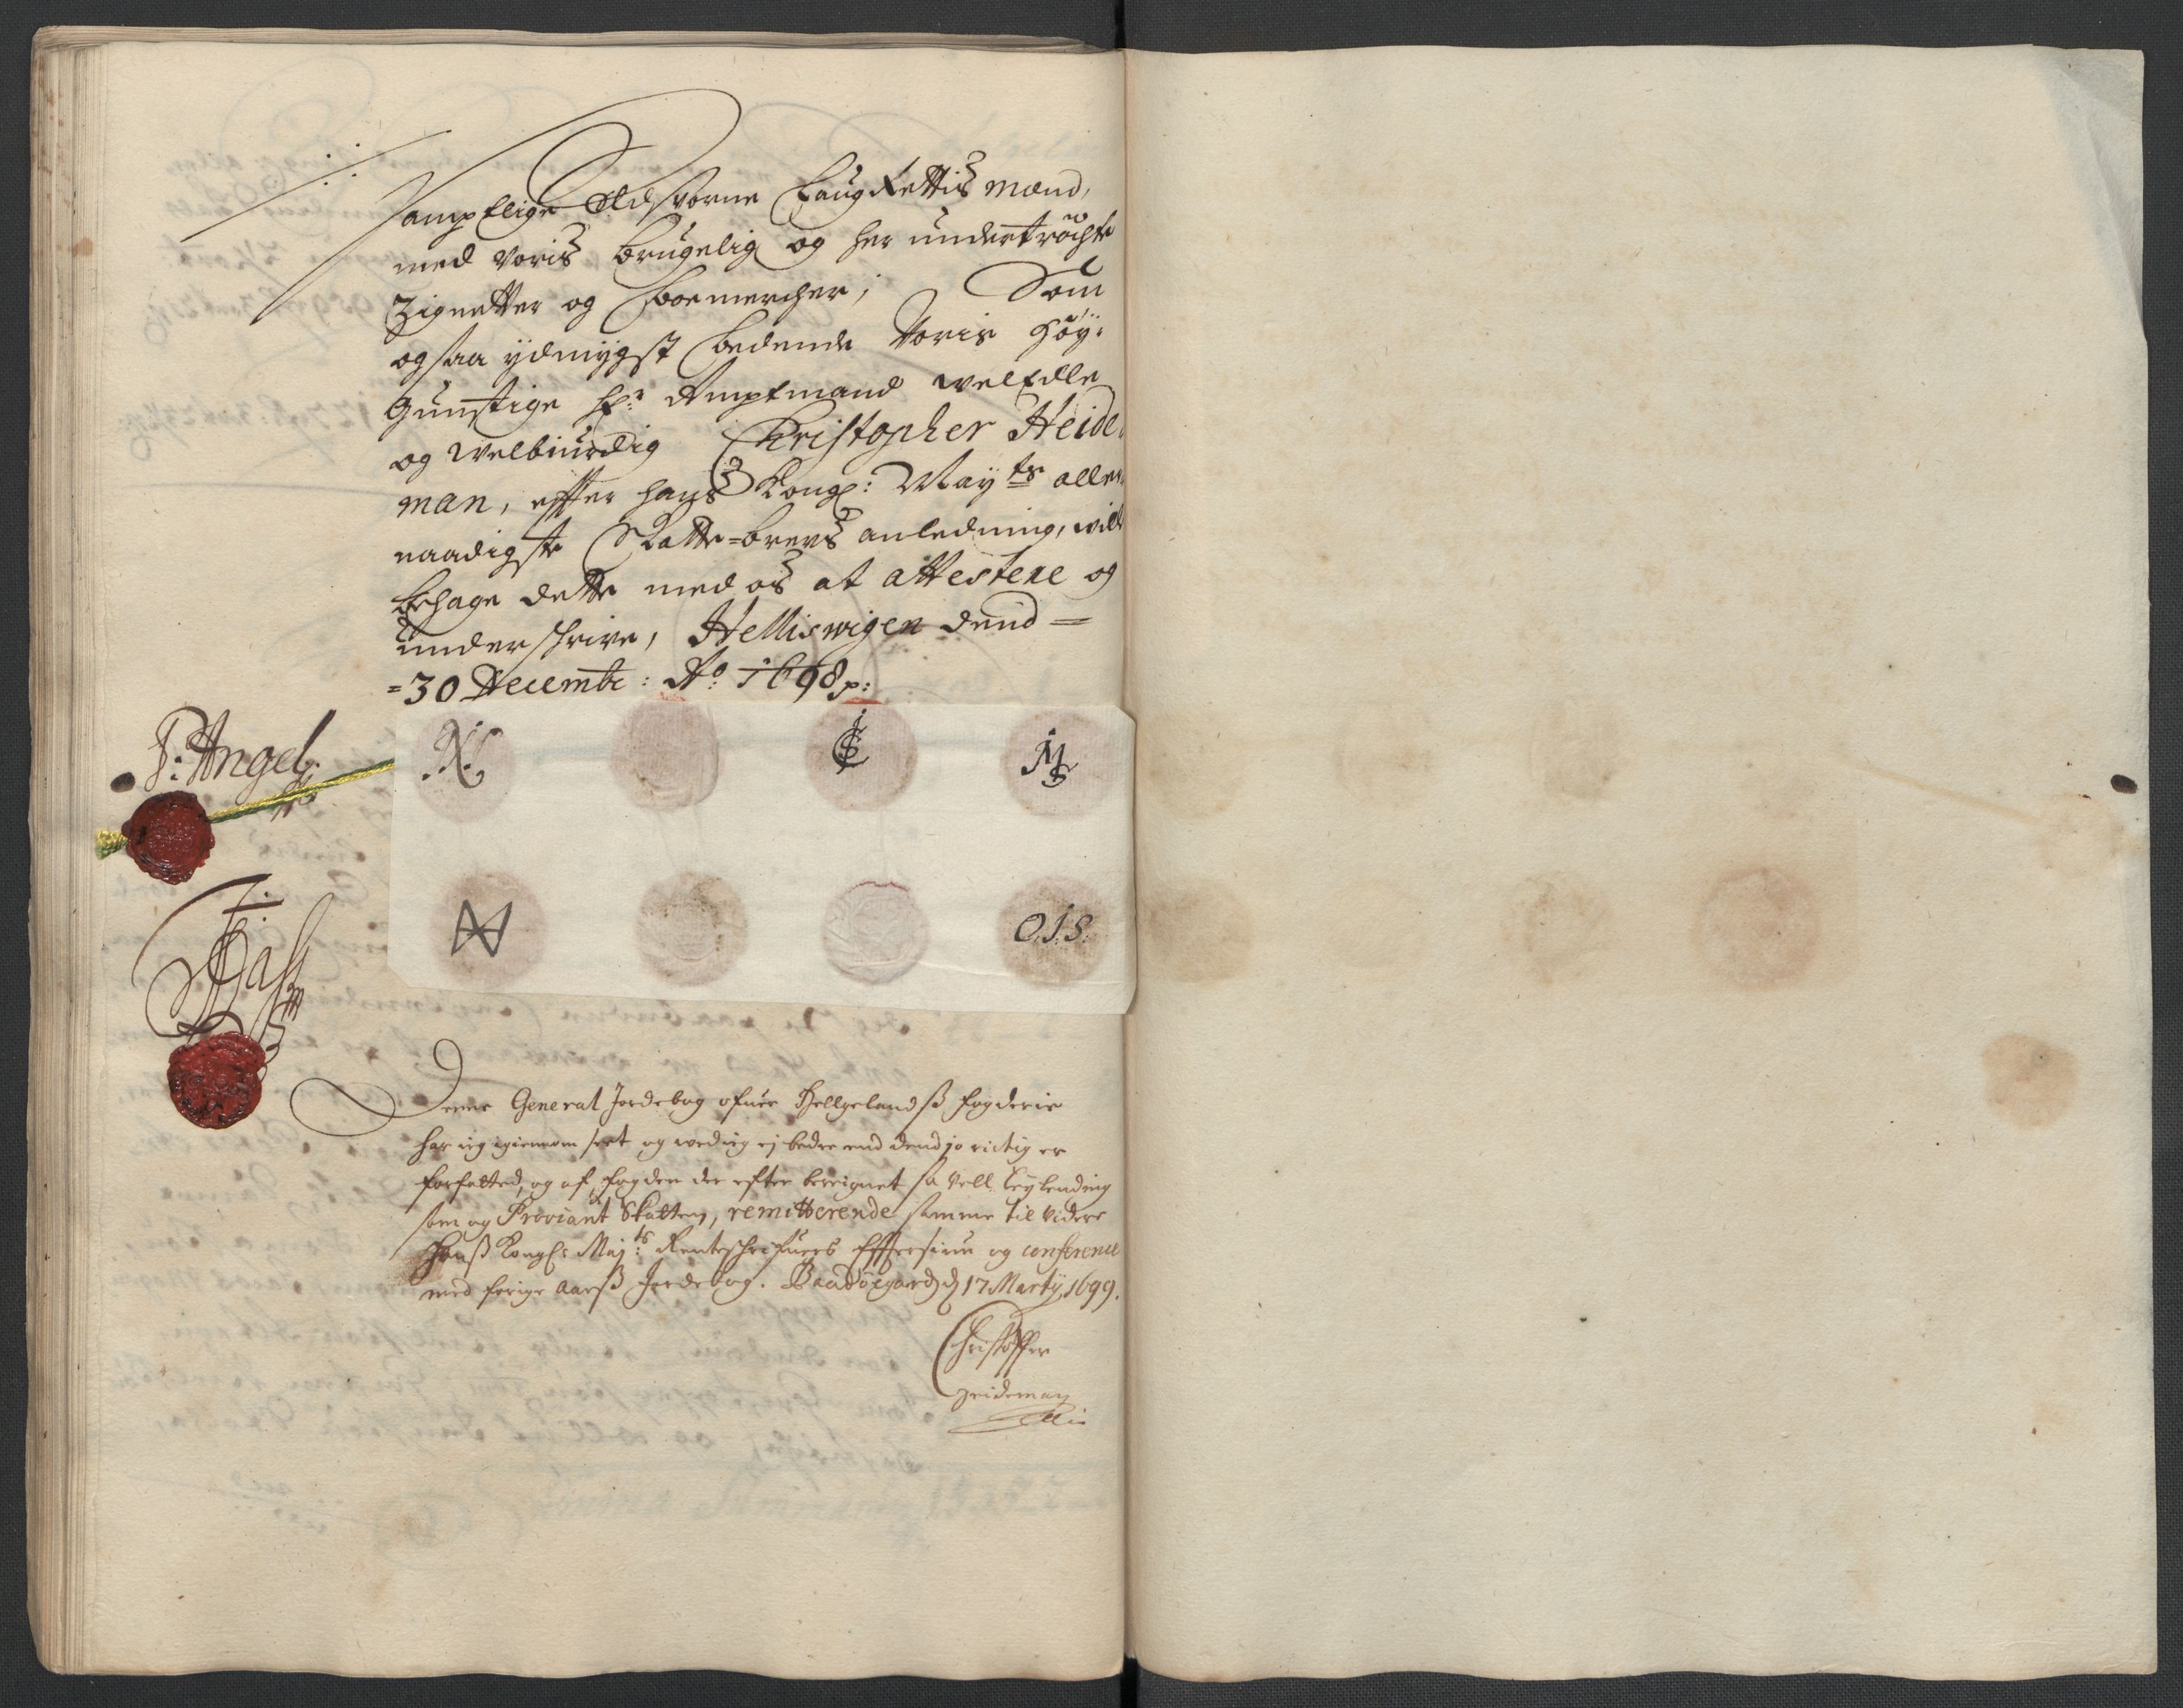 samptlige Edsvorne Laug Rettis mænd,
med voris brugelig og her undertröchte
Zignetter og boemercher, Som
ogsaa ydmygst bedende Voris Höy-
Gunstige Hr: Amptmand WelEdle
og Welbiurdig Christopher Heide
man, effter hans Kongl: May:ts aller
naadigste Skatte-brevs anledning, wille
behage dette med os at attestere og
underschrive, Helliswigen dend =
=30 Decembr: Ao: 1698 p:
P: Angel
O.J.S.
Denne General Jordebog ofuer Hellgelandsß fogderie
har ieg igiennom seet og wed ieg ej bedre end dend jo rictig er
forfatted, og af fogden der efter bereignet sa vell leylending
som og Proviant Skatten, remitterende samme til videre
Hanß Kongl: Maj:ts Renteschrifuers Effterſiun og conference
med forige Aarß Jordebog. Bodöegard d 17 Martij 1699.
Christoffer
Heideman